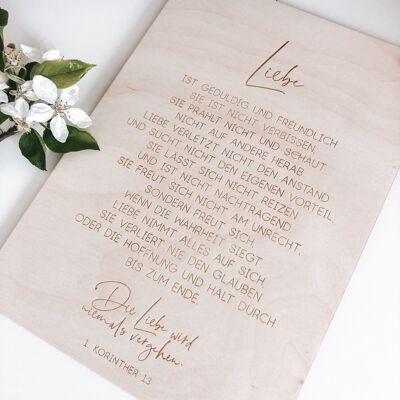 Liebe
IST GEDULDIG UND FREUNDLICH
SIE IST NICHT VERBISSEN,
SIE PRAHLT NICHT UND SCHAUT
NICHT AUF ANDERE HERAB.
LIEBE VERLETZT NICHT DEN ANSTAND
UND SUCHT NICHT DEN EIGENEN VORTEIL,
SIE LÄSST SICH NICHT REIZEN
UND IST NICHT NACHTRAGEND.
SIE FREUT SICH NICHT AM UNRECHT,
SONDERN FREUT SICH,
WENN DIE WAHRHEIT SIEGT.
LIEBE NIMMT ALLES AUF SICH,
SIE VERLIERT NIE DEN GLAUBEN
ODER DIE HOFFNUNG UND HÄLT DURCH
BIS ZUM ENDE.
Die Liebe wird
niemals vergehen.
1. KORINTHER 13